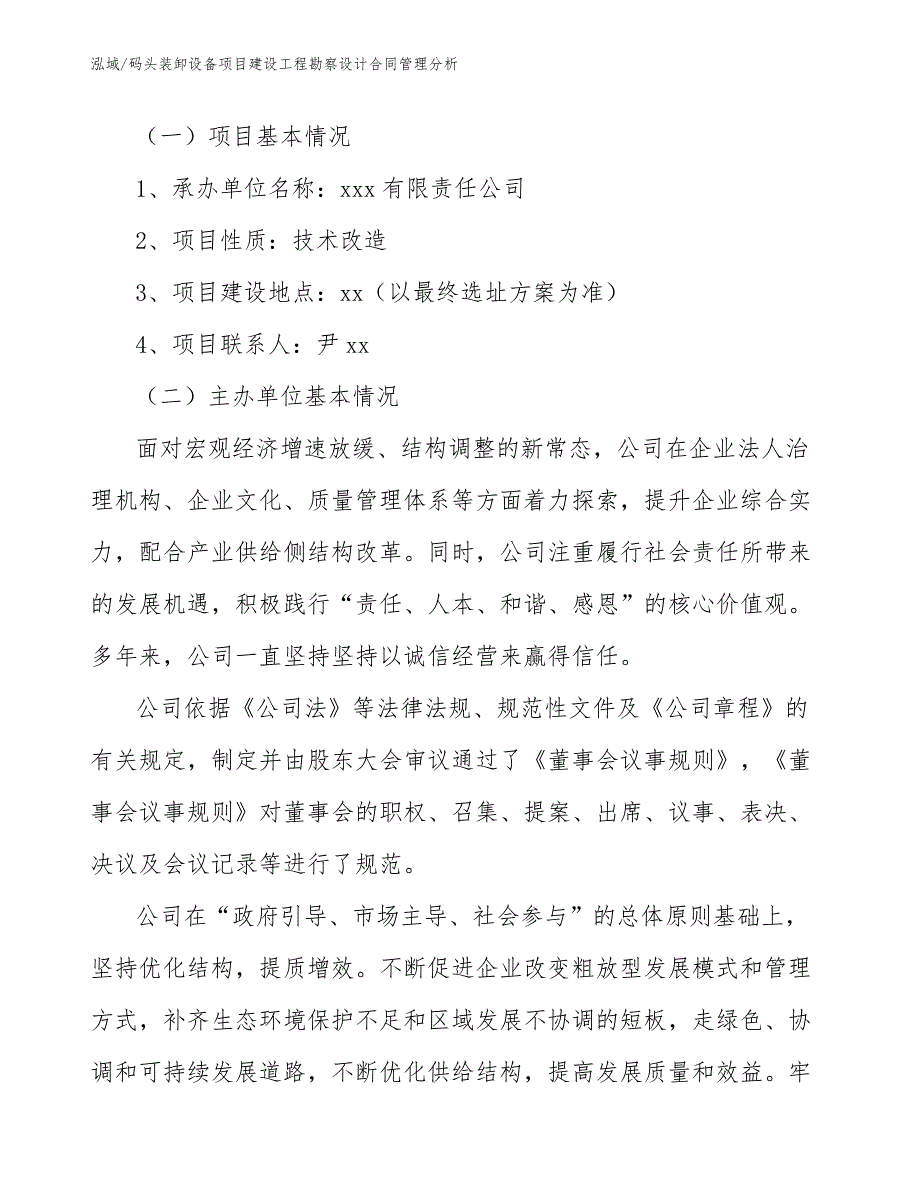 泓域/码头装卸设备项目建设工程勘察设计合同管理分析
（一）项目基本情况
1、承办单位名称：xxx有限责任公司
2、项目性质：技术改造
3、项目建设地点：xx（以最终选址方案为准）
4、项目联系人：尹xx
（二）主办单位基本情况
面对宏观经济增速放缓、结构调整的新常态，公司在企业法人治
理机构、企业文化、质量管理体系等方面着力探索，提升企业综合实
力，配合产业供给侧结构改革。同时，公司注重履行社会责任所带来
的发展机遇，积极践行“责任、人本、和谐、感恩”的核心价值观。
多年来，公司一直坚持坚持以诚信经营来赢得信任。
公司依据《公司法》等法律法规、规范性文件及《公司章程》的
有关规定，制定并由股东大会审议通过了《董事会议事规则》，《董
事会议事规则》对董事会的职权、召集、提案、出席、议事、表决、
决议及会议记录等进行了规范。
公司在“政府引导、市场主导、社会参与”的总体原则基础上，
坚持优化结构，提质增效。不断促进企业改变粗放型发展模式和管理
方式，补齐生态环境保护不足和区域发展不协调的短板，走绿色、协
调和可持续发展道路，不断优化供给结构，提高发展质量和效益。牢